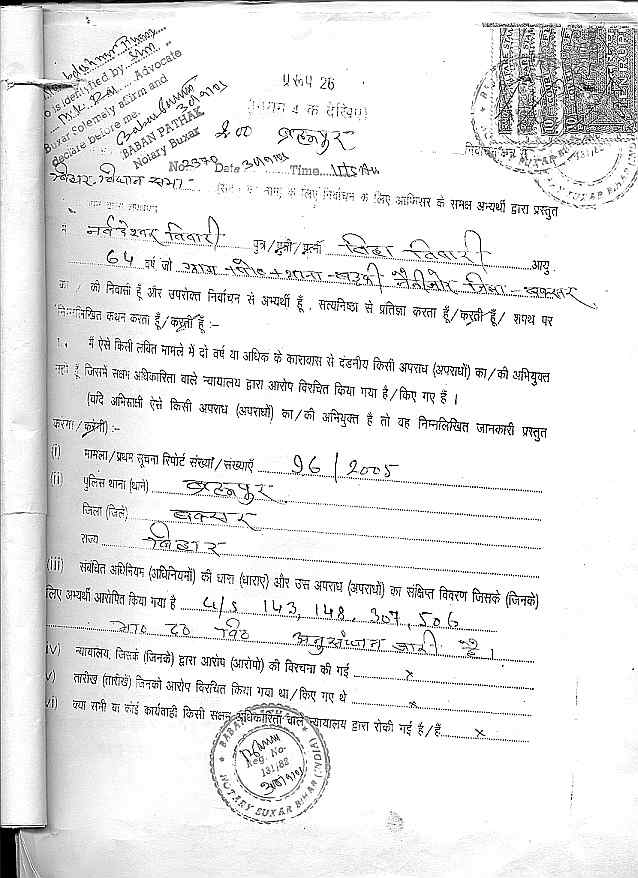 is identified by
Advocate
Solemely afirm and
declare before me.
BABAN PATHAK
Notary Buxar
प्ररूप 26
(नियम 4 क देखिए)
200 ब्रह्मपुर
निर्वाचन क्षेत्र से
No. 2378 Date Time
बिहार विधान सभा
के लिए निर्वाचन के लिए आफिसर के समक्ष अभ्यर्थी द्वारा प्रस्तुत
मैं तिवारी पुत्र/पुत्री/पत्नी तिवारी आयु
64 वर्ष जो ग्राम जिला - बक्सर
का / की निवासी हूँ और उपरोक्त निर्वाचन से अभ्यर्थी हूँ, सत्यनिष्ठा से प्रतिज्ञा करता हूँ/करती हूँ/ शपथ पर
निम्नलिखित कथन करता हूँ/करती हूँ :-
मैं ऐसे किसी लंबित मामले में दो वर्ष या अधिक के कारावास से दंडनीय किसी अपराध (अपराधों) का/की अभियुक्त
नहीं हूँ जिसमें सक्षम अधिकारिता वाले न्यायालय द्वारा आरोप विरचित किया गया है/किए गए हैं ।
(यदि अभिसाक्षी ऐसे किसी अपराध (अपराधों) का/की अभियुक्त है तो वह निम्नलिखित जानकारी प्रस्तुत
करेगा/करेगी) :-
(i) मामला/प्रथम सूचना रिपोर्ट संख्या/संख्याएँ 96/2005
(ii) पुलिस थाना (थाने) ब्रह्मपुर
जिला (जिले) बक्सर
राज्य बिहार
(iii) संबंधित अधिनियम (अधिनियमों) की धारा (धाराएं) और उस अपराध (अपराधों) का संक्षिप्त विवरण जिसके (जिनके)
लिए अभ्यर्थी आरोपित किया गया है u/s 143, 148, 307, 506
भा० द० वि० अनुसंधान जारी है।
(iv) न्यायालय, जिसके (जिनके) द्वारा आरोप (आरोपों) की विरचना की गई x
(v) तारीख (तारीखें) जिनको आरोप विरचित किया गया था/किए गए थे x
(vi) क्या सभी या कोई कार्यवाही किसी सक्षम अधिकारिता वाले न्यायालय द्वारा रोकी गई है/हैं x
BABAN PATHAK
Reg. No-
131/82
NOTARY BUXAR BIHAR (INDIA)